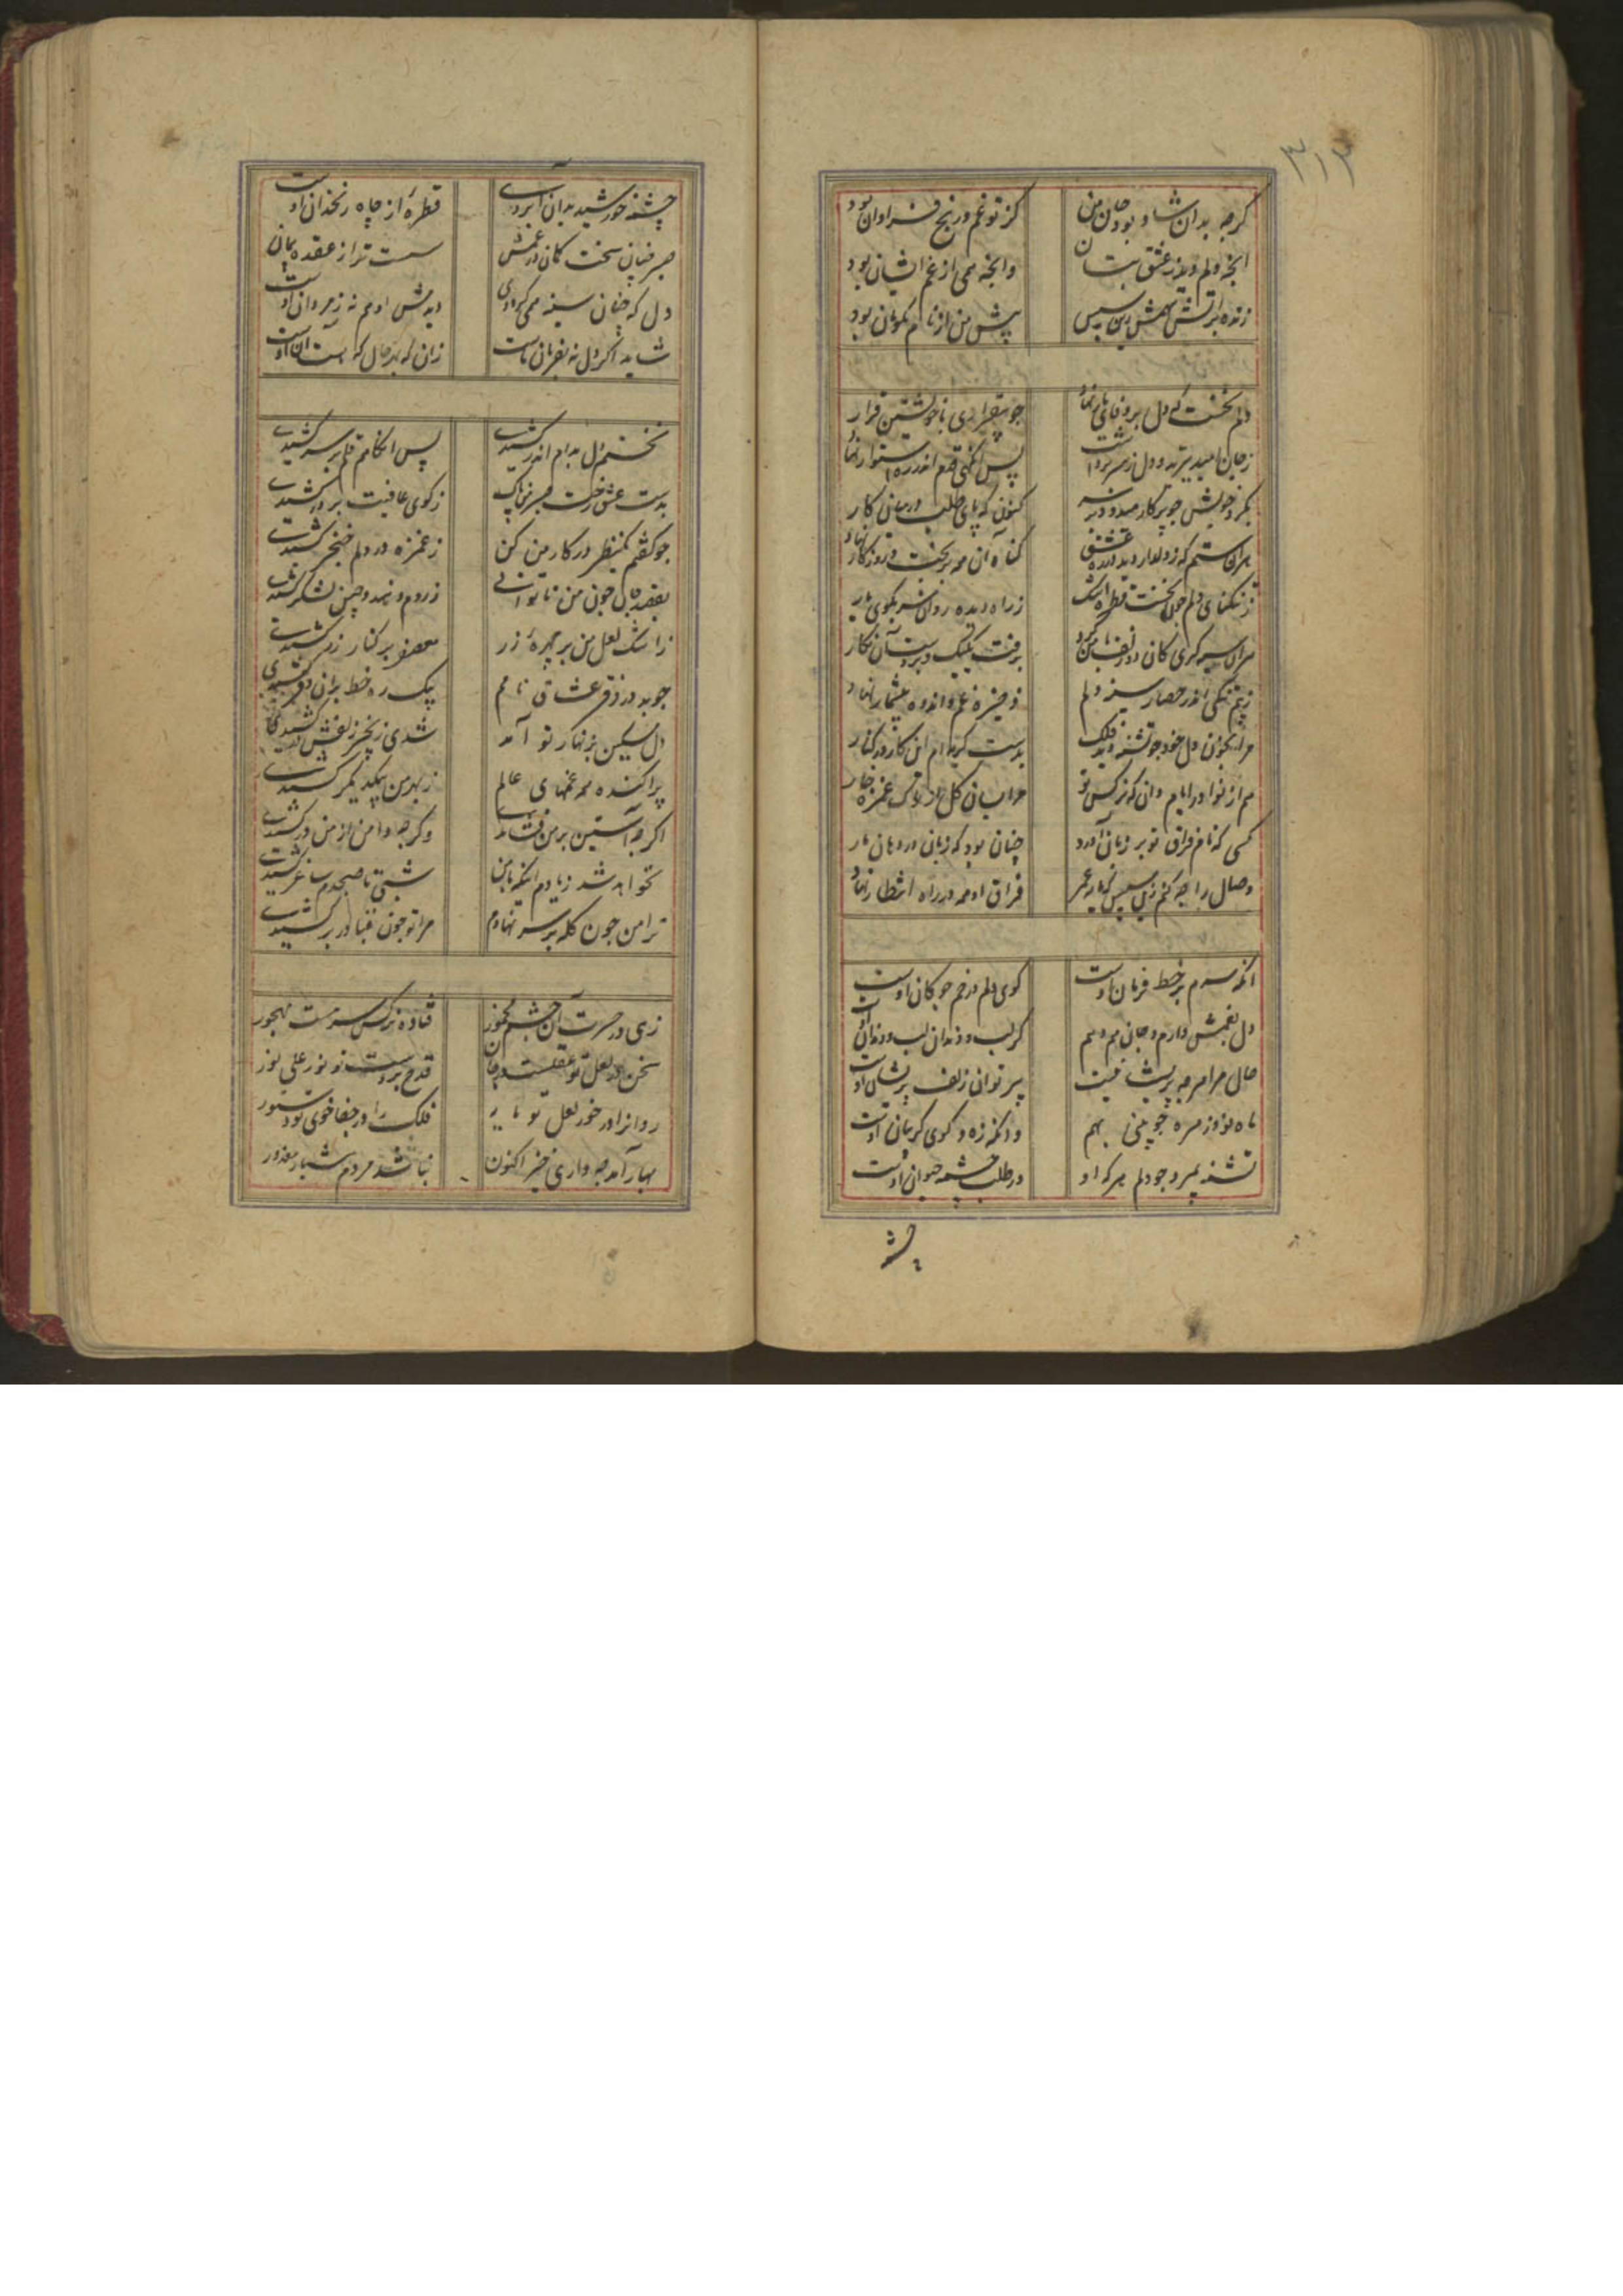 ۳۱۳
کرچه بدان شاد بود جان من کز تو غم و رنج فراوان بود
انچه دلم دید ز عشق بتان وانچه همی از غم ایشان بود
زنده بر آتش پیش من از نام نکویان بود
دلم نخست که دل بر وفای یار نهاد چو بیقراری با خویشتن قرار
ز جان امید پس انگهی قدم اندر ره استوار نهاد
بگرد خویش چو پرکار کنون که پای طلب در میان کار
هران ستم که ز دلدار دید در ره عشق گناه آن همه بر بخت و روزگار نهاد
ز تنگنای دلم چون نخست قطره اشک ز راه دیده روان شد بکوی یار
هران سیه گری کان دو زلف با من کرد برفت یکیک و بر دست آن نگار
ز بیم تنگی اندر حصار سینه دلم ذخیره غم و اندوه بیشمار نهاد
مرا بخون دل خود چو تشنه دید فلک بدست گریه ام این کار در کنار
هم از تو در ایام دان که نرکس تو میان گل از ناوک غمزه خار
کسی که نام فراق تو بر زبان آورد چنان بود که زبان در دهان مار
وصال را چه کنم زین سپس که یار عمر فراق او همه در راه انتظار نهاد
انکه سرم بر خط فرمان اوست گوی دلم در خم چوگان اوست
دل بغمش دارم و جان هم دهم گر لب و دندان لب و دندان اوست
حال مرا هر چه پریشانیست بر توان زلف پریشان اوست
ماه نو از مهره چو بینی بهم وانکه زه و گوی گریبان اوست
تشنه بمیرد چو دلم هر که او در طلب چشمه حیوان اوست
چشمه
چشمه خورشید بدان آبروی قطره از چاه زنخدان اوست
صبر چنان سخت کمان در غمش سست تر از عقده پیمان
دل که چنان سینه همی کرد دی دیدمش او هم نه ز مردان اوست
شاید اگر دل نه بفرمان ماست زان که بهر حال که هست آن اوست
نخستم دل بدام اندر کشیدی پس انگاهم قلم بر سر کشیدی
بدست عشق رخت ز کوی عافیت بر در کشیدی
چو گفتم یکنظر در کار من کن ز غمزه در دلم خنجر کشیدی
بقصد جان چون من ناتوانی ز روم و هند و چین لشکر کشیدی
ز اشک لعل من بر چهره زر بر کنار زر کشیدی
چو بد در زرق عشاق نامم یک ره خط بران دفتر کشیدی
دل مسکین بزنهار تو آمد شدی زنجیر زلفش
پراکنده همه غمهای عالم ز بهر من بیکدیگر کشیدی
اکر چه آستین بر من فشاندی وکر چه دامن از من در کشیدی
نخواهد شد ز یادم اینکه با من شبی تا صبحدم ساغر کشیدی
ترا من چون کله بر سر نهادم مرا تو چون قبا در بر کشیدی
زهی در حسرت آن چشم مخمور فتاده نرکس سرمست مهجور
سخن در لعل تو عقلست در جان قدح بر دست تو نور علی نور
روانرا در خور لعل تو یار فلک را در جفا خوی تو دستور
بهار آمد چه داری خیز اکنون نباشد مردم هشیار معذور